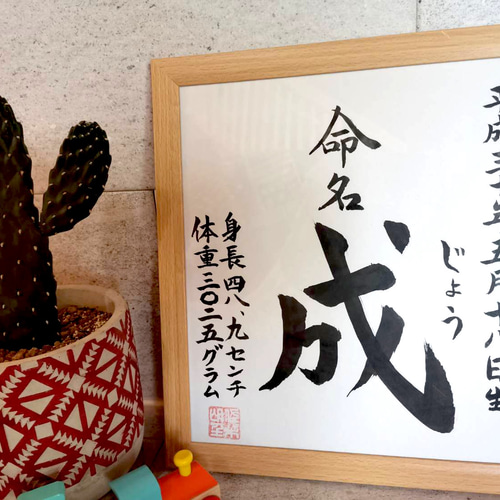 平成三年五月十八日生
命名
成
じょう
身長四八、九センチ
体重三〇二五グラム